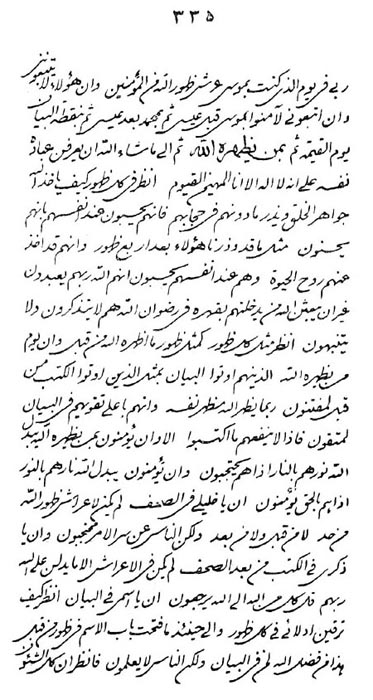 ٣٣٥
ربي في يوم الذي كنت بموسى عرش ظهور الله في المؤمنين وان هؤلاء لا يتبعونني
وان اتبعوني لآمنوا بموسى قبل عيسى ثم بمحمد بعد عيسى ثم بنقطة البيان
يوم القيمة ثم بمن يظهره الله ثم الى ما شاء الله ان يعرفن عباده
نفسه على انه لا اله الا انا المهيمن القيوم انظر في كل ظهور كيف ياخذ الله
جواهر الخلق ويذر ما دونهم في حجابهم فانهم يحسبون عند انفسهم بانهم
يحسنون مثل ما قد وذرنا هؤلاء بعد اربع ظهور وانهم قد اخذ
عنهم روح الحيوة وهم عند انفسهم يحسبون انهم الله ربهم يعبدون
غير ان يبعث الله من يدخلنهم بقهره في رضوان الله هم لا يتذكرون ولا
يتنبهون انظر مثل كل ظهور كمثل ظهور ما اظهره الله من قبل وان يوم
من يظهره الله الذينهم اوتوا البيان بمثل الذين اوتوا الكتب من
قبل لمفتنون ربما يظهر الله مظهر نفسه وانهم باعلى تقويهم في البيان
لمتقون فاذا لا ينفعهم ما اكتسبوا الا وان يؤمنون بمن يظهره الله يبدل
الله نورهم بالنار اذا هم يحتجبون وان يؤمنون يبدل الله نارهم بالنور
اذا هم بالحق يؤمنون ان يا خليلي في الصحف لم يكن لاعراش ظهور الله
من حد لا من قبل ولا من بعد ولكن الناس عن سر الامر محتجبون وان يا
ذكري في الكتب من بعد الصحف لم يكن في الاعراش الا ما يدلن على الله
ربهم قل كل من الله الى الله يرجعون ان يا اسمي في البيان انظر كيف
ترقين ادلائي في كل ظهور والى حينئذ ما فتحت باب الاسم في ظهور من قبل
هذا من فضل الله لمن في البيان ولكن الناس لا يعلمون فانظر ان كل الشئون